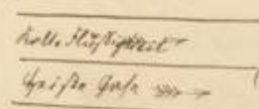 Kalte Flüssigkeit
Heiße Gase